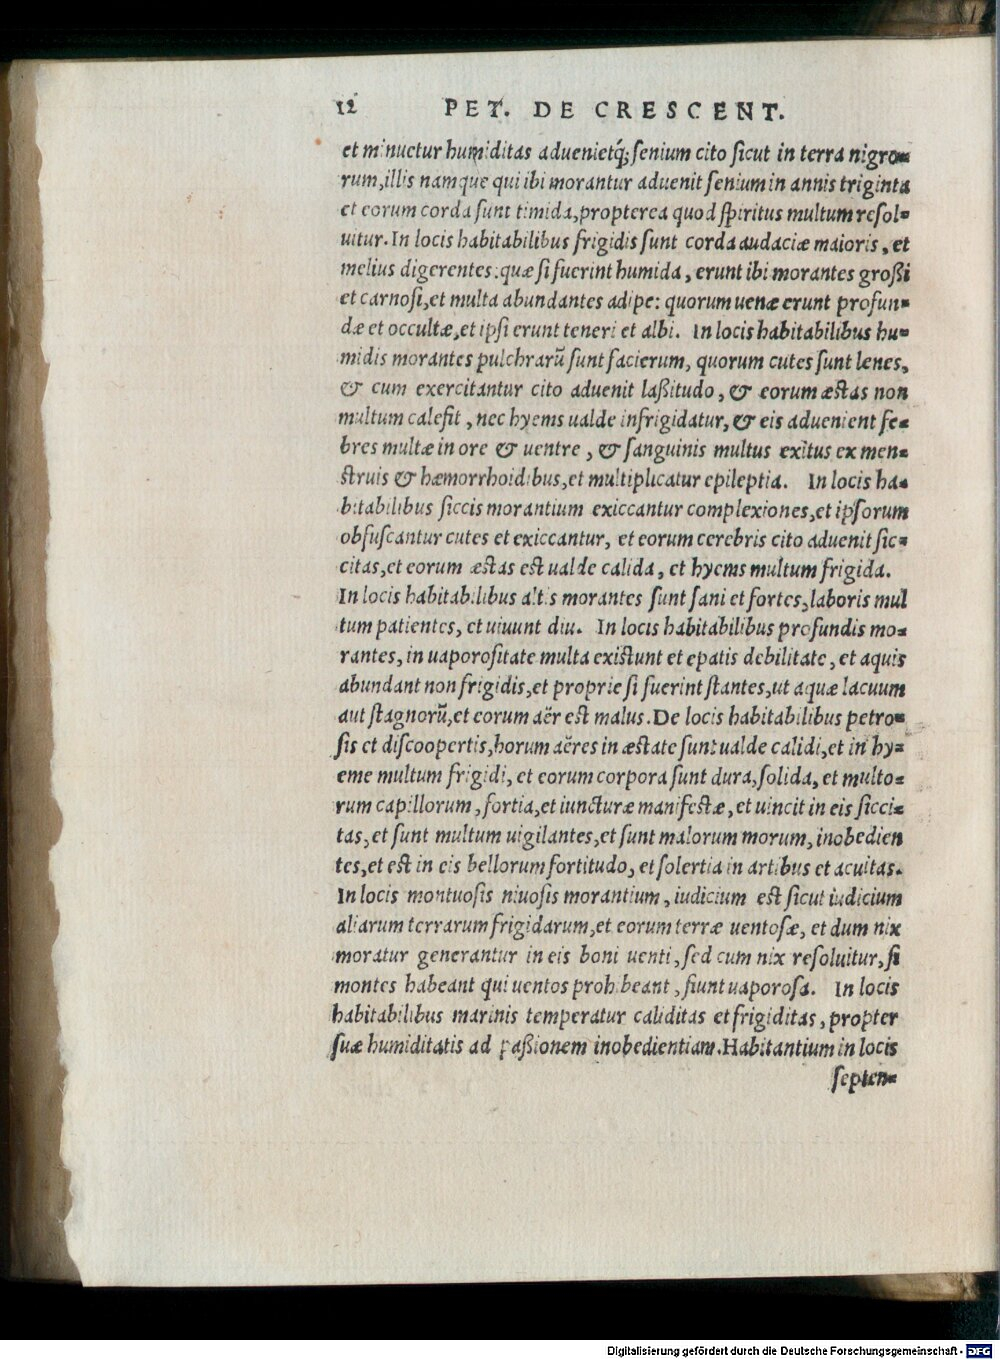 12 PET. DE CRESCENT.
et minuetur humiditas aduenietq́; ſenium cito ſicut in terra nigro=
rum, illis namque qui ibi morantur aduenit ſenium in annis triginta
et eorum corda ſunt timida, propterea quod ſpiritus multum reſol=
uitur. In locis habitabilibus frigidis ſunt corda audaciæ maioris, et
melius digerentes: quæ ſi fuerint humida, erunt ibi morantes groſſi
et carnoſi, et multa abundantes adipe: quorum uenæ erunt profun=
dæ et occultæ, et ipſi erunt teneri et albi. In locis habitabilibus hu=
midis morantes pulchrarũ ſunt facierum, quorum cutes ſunt lenes,
& cum exercitantur cito aduenit laſſitudo, & eorum æſtas non
multum calefit, nec hyems ualde infrigidatur, & eis aduenient fe=
bres multæ in ore & uentre, & ſanguinis multus exitus ex men=
ſtruis & hæmorrhoidibus, et multiplicatur epileptia. In locis ha=
bitabilibus ſiccis morantium exiccantur complexiones, et ipſorum
obfuſcantur cutes et exiccantur, et eorum cerebris cito aduenit ſic=
citas, et eorum æſtas eſt ualde calida, et hyems multum frigida.
In locis habitabilibus altis morantes ſunt ſani et fortes, laboris mul
tum patientes, et uiuunt diu. In locis habitabilibus profundis mo=
rantes, in uaporoſitate multa exiſtunt et epatis debilitate, et aquis
abundant non frigidis, et proprie ſi fuerint ſtantes, ut aquæ lacuum
aut ſtagnorũ, et eorum aër eſt malus. De locis habitabilibus petro=
ſis et diſcoopertis, horum aëres in æſtate ſunt ualde calidi, et in hy=
eme multum frigidi, et eorum corpora ſunt dura, ſolida, et multo=
rum capillorum, fortia, et iuncturæ manifeſtæ, et uincit in eis ſicci=
tas, et ſunt multum uigilantes, et ſunt malorum morum, inobedien
tes, et eſt in eis bellorum fortitudo, et ſolertia in artibus et acuitas.
In locis montuoſis niuoſis morantium, iudicium eſt ſicut iudicium
aliarum terrarum frigidarum, et eorum terræ uentoſæ, et dum nix
moratur generantur in eis boni uenti, ſed cum nix reſoluitur, ſi
montes habeant qui uentos prohibeant, fiunt uaporoſa. In locis
habitabilibus marinis temperatur caliditas et frigiditas, propter
ſuæ humiditatis ad paſſionem inobedientiam. Habitantium in locis
ſepten=
Digitalisierung gefördert durch die Deutsche Forschungsgemeinschaft - DFG